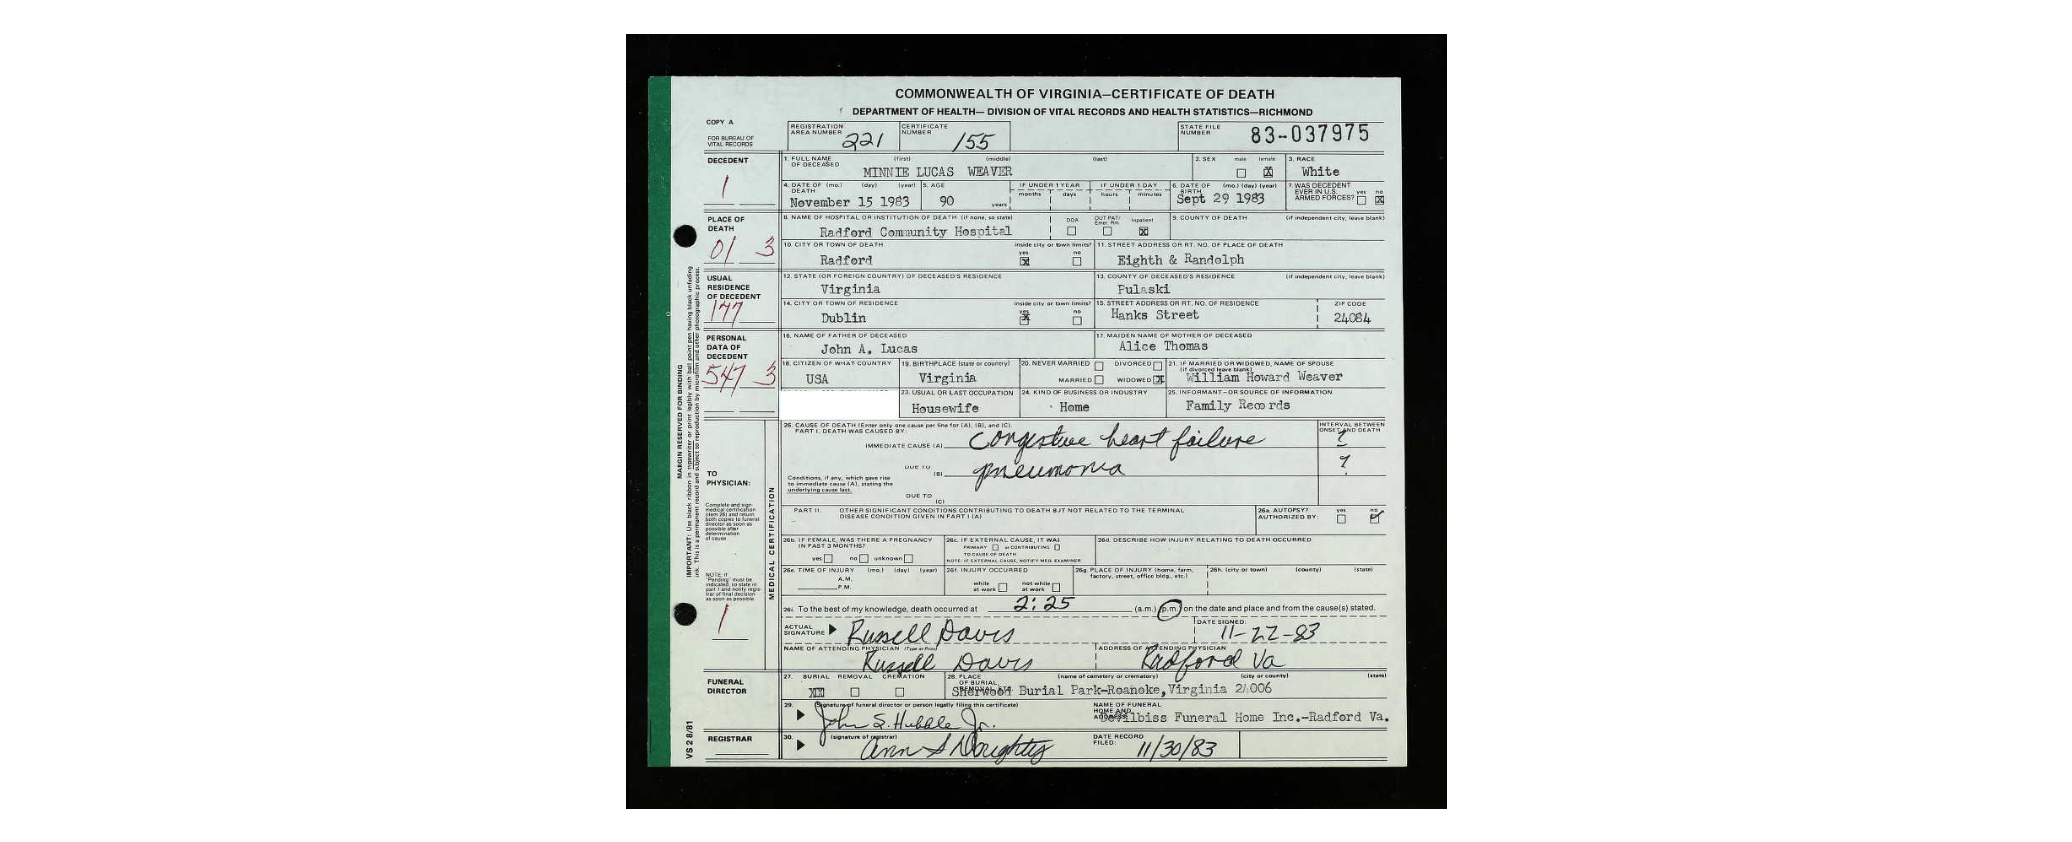 COMMONWEALTH OF VIRGINIA—CERTIFICATE OF DEATH
DEPARTMENT OF HEALTH— DIVISION OF VITAL RECORDS AND HEALTH STATISTICS—RICHMOND
COPY A
FOR BUREAU OF VITAL RECORDS
REGISTRATION AREA NUMBER 221
CERTIFICATE NUMBER 155
STATE FILE NUMBER 83-037975
DECEDENT
1
1. FULL NAME OF DECEASED (first) (middle) (last)
MINNIE LUCAS WEAVER
2. SEX male female X
3. RACE
White
4. DATE OF DEATH (mo.) (day) (year)
November 15 1983
5. AGE
90 years
IF UNDER 1 YEAR months days
IF UNDER 1 DAY hours minutes
6. DATE OF BIRTH (mo.) (day) (year)
Sept 29 1983
7. WAS DECEDENT EVER IN U.S. ARMED FORCES? yes no X
PLACE OF DEATH
01 3
8. NAME OF HOSPITAL OR INSTITUTION OF DEATH (if none, so state)
Radford Community Hospital
DOA OUT PAT/ Emer. Rm. Inpatient X
9. COUNTY OF DEATH (if independent city, leave blank)
10. CITY OR TOWN OF DEATH
Radford
inside city or town limits? yes X no
11. STREET ADDRESS OR RT. NO. OF PLACE OF DEATH
Eighth & Randolph
USUAL RESIDENCE OF DECEDENT
177
12. STATE (OR FOREIGN COUNTRY) OF DECEASED'S RESIDENCE
Virginia
13. COUNTY OF DECEASED'S RESIDENCE (if independent city, leave blank)
Pulaski
14. CITY OR TOWN OF RESIDENCE
Dublin
inside city or town limits? yes X no
15. STREET ADDRESS OR RT. NO. OF RESIDENCE
Hanks Street
ZIP CODE
24084
PERSONAL DATA OF DECEDENT
547 3
16. NAME OF FATHER OF DECEASED
John A. Lucas
17. MAIDEN NAME OF MOTHER OF DECEASED
Alice Thomas
18. CITIZEN OF WHAT COUNTRY
USA
19. BIRTHPLACE (state or country)
Virginia
20. NEVER MARRIED DIVORCED
MARRIED WIDOWED X
21. IF MARRIED OR WIDOWED, NAME OF SPOUSE (if divorced leave blank)
William Howard Weaver
23. USUAL OR LAST OCCUPATION
Housewife
24. KIND OF BUSINESS OR INDUSTRY
Home
25. INFORMANT—OR SOURCE OF INFORMATION
Family Records
MARGIN RESERVED FOR BINDING
IMPORTANT: Use black ribbon in typewriter or print legibly with ball point pen having black unfading
ink. This is a permanent record and subject to reproduction by microfilm and other photographic process.
MEDICAL CERTIFICATION
TO PHYSICIAN:
Complete and sign medical certification (item 26) and return both copies to funeral director as soon as possible after determination of cause.
NOTE: If "Pending" must be indicated, so state in part 1 and notify registrar of final decision as soon as possible
1
26. CAUSE OF DEATH (Enter only one cause per line for (A), (B), and (C).
PART I. DEATH WAS CAUSED BY:
INTERVAL BETWEEN ONSET AND DEATH
IMMEDIATE CAUSE (A) Congestive heart failure ?
DUE TO (B) pneumonia ?
Conditions, if any, which gave rise to immediate cause (A), stating the underlying cause last.
DUE TO (C)
PART II. OTHER SIGNIFICANT CONDITIONS CONTRIBUTING TO DEATH BUT NOT RELATED TO THE TERMINAL DISEASE CONDITION GIVEN IN PART I (A)
26a. AUTOPSY? AUTHORIZED BY: yes no
26b. IF FEMALE, WAS THERE A PREGNANCY IN PAST 3 MONTHS?
yes no unknown
26c. IF EXTERNAL CAUSE, IT WAS
PRIMARY or CONTRIBUTING
TO CAUSE OF DEATH
NOTE: IF EXTERNAL CAUSE, NOTIFY MED. EXAMINER
26d. DESCRIBE HOW INJURY RELATING TO DEATH OCCURRED
26e. TIME OF INJURY (mo.) (day) (year)
A.M.
P.M.
26f. INJURY OCCURRED
while at work not while at work
26g. PLACE OF INJURY (home, farm, factory, street, office bldg., etc.)
26h. (city or town) (county) (state)
26i. To the best of my knowledge, death occurred at 2:25 (a.m.) (p.m.) on the date and place and from the cause(s) stated.
ACTUAL SIGNATURE Russell Davis
DATE SIGNED:
11-22-83
NAME OF ATTENDING PHYSICIAN (Type or Print)
Russell Davis
ADDRESS OF ATTENDING PHYSICIAN
Radford Va
FUNERAL DIRECTOR
27. BURIAL REMOVAL CREMATION
XX
28. PLACE OF BURIAL (name of cemetery or crematory) (city or county) (state)
Sherwood Burial Park-Roanoke, Virginia 24006
29. (Signature of funeral director or person legally filing this certificate)
John S. Hubble Jr.
NAME OF FUNERAL HOME AND ADDRESS
DeVilbiss Funeral Home Inc.-Radford Va.
REGISTRAR
30. (signature of registrar)
Ann S Doughty
DATE RECORD FILED:
11/30/83
VS 2 8/81